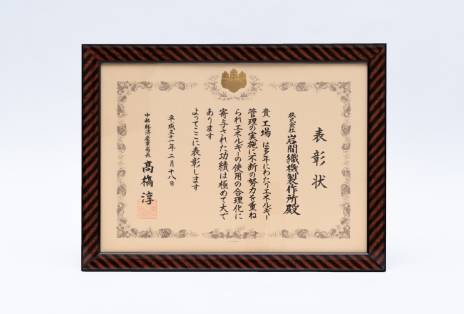 表彰状
株式会社 岩間織機製作所殿
貴工場は多年にわたりエネルギー
管理の実施に不断の努力を重ね
られエネルギーの使用の合理化に
寄与された功績は極めて大で
あります
よってここに表彰します
平成三十一年二月十八日
中部経済産業局長 髙橋 淳